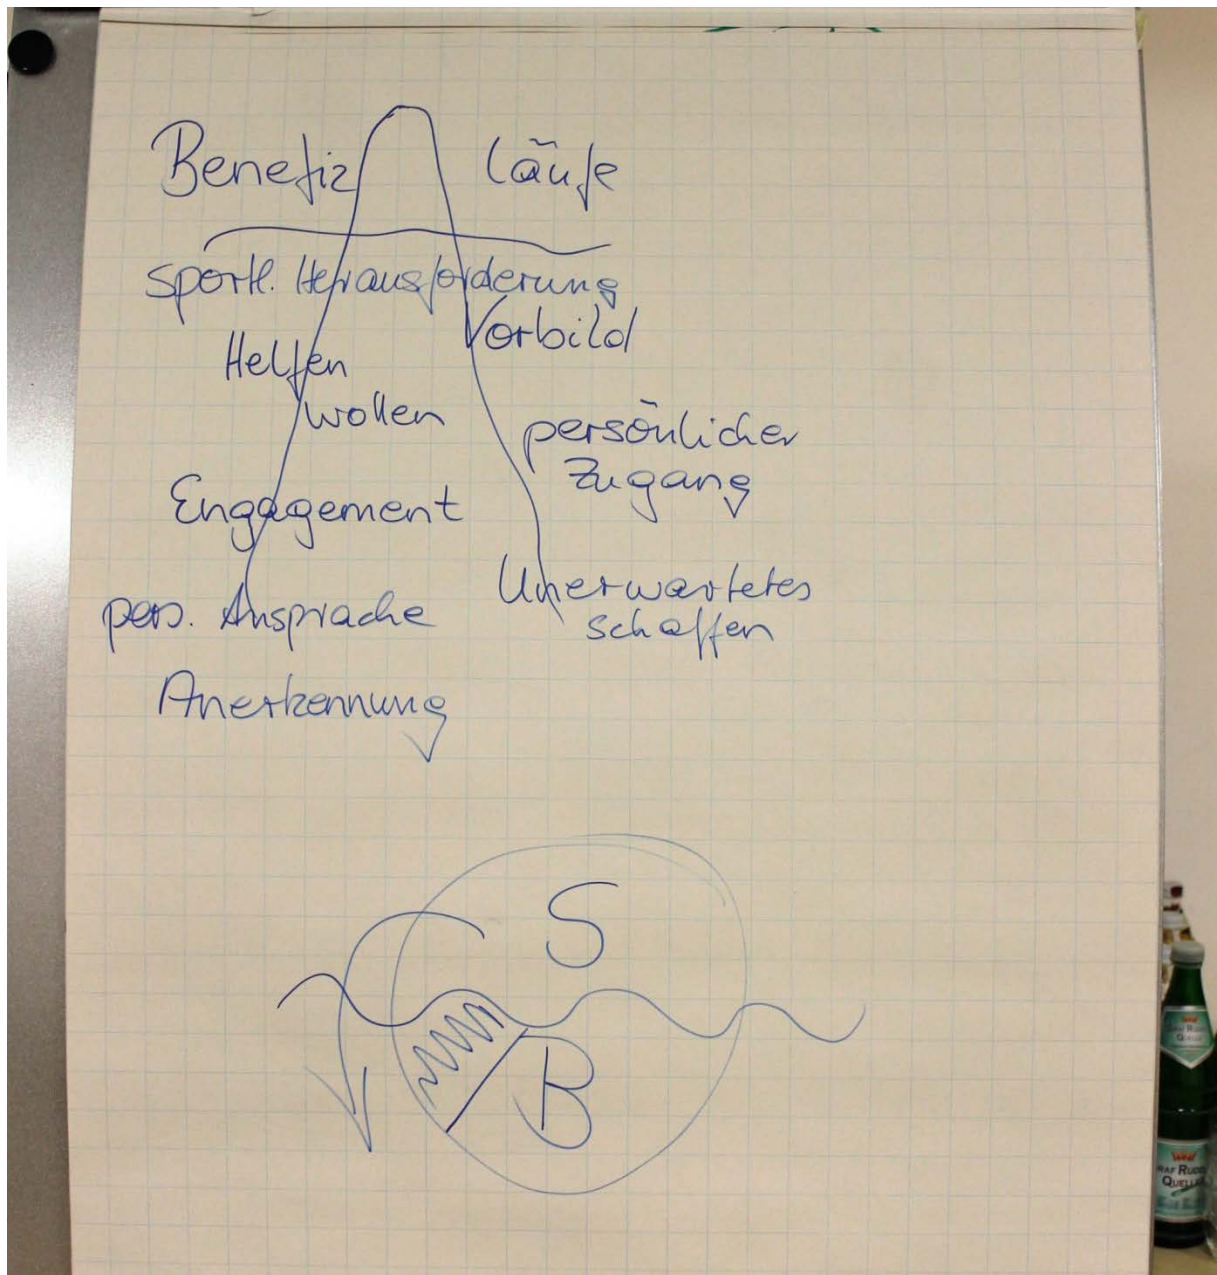 Benefiz läufe
sportl. Herausforderung
Vorbild
Helfen
wollen
persönlicher
Zugang
Engagement
Unerwartetes
schaffen
pers. Ansprache
Anerkennung
S
B
RUDO
QUELLE
RAF RUDO
QUELLE